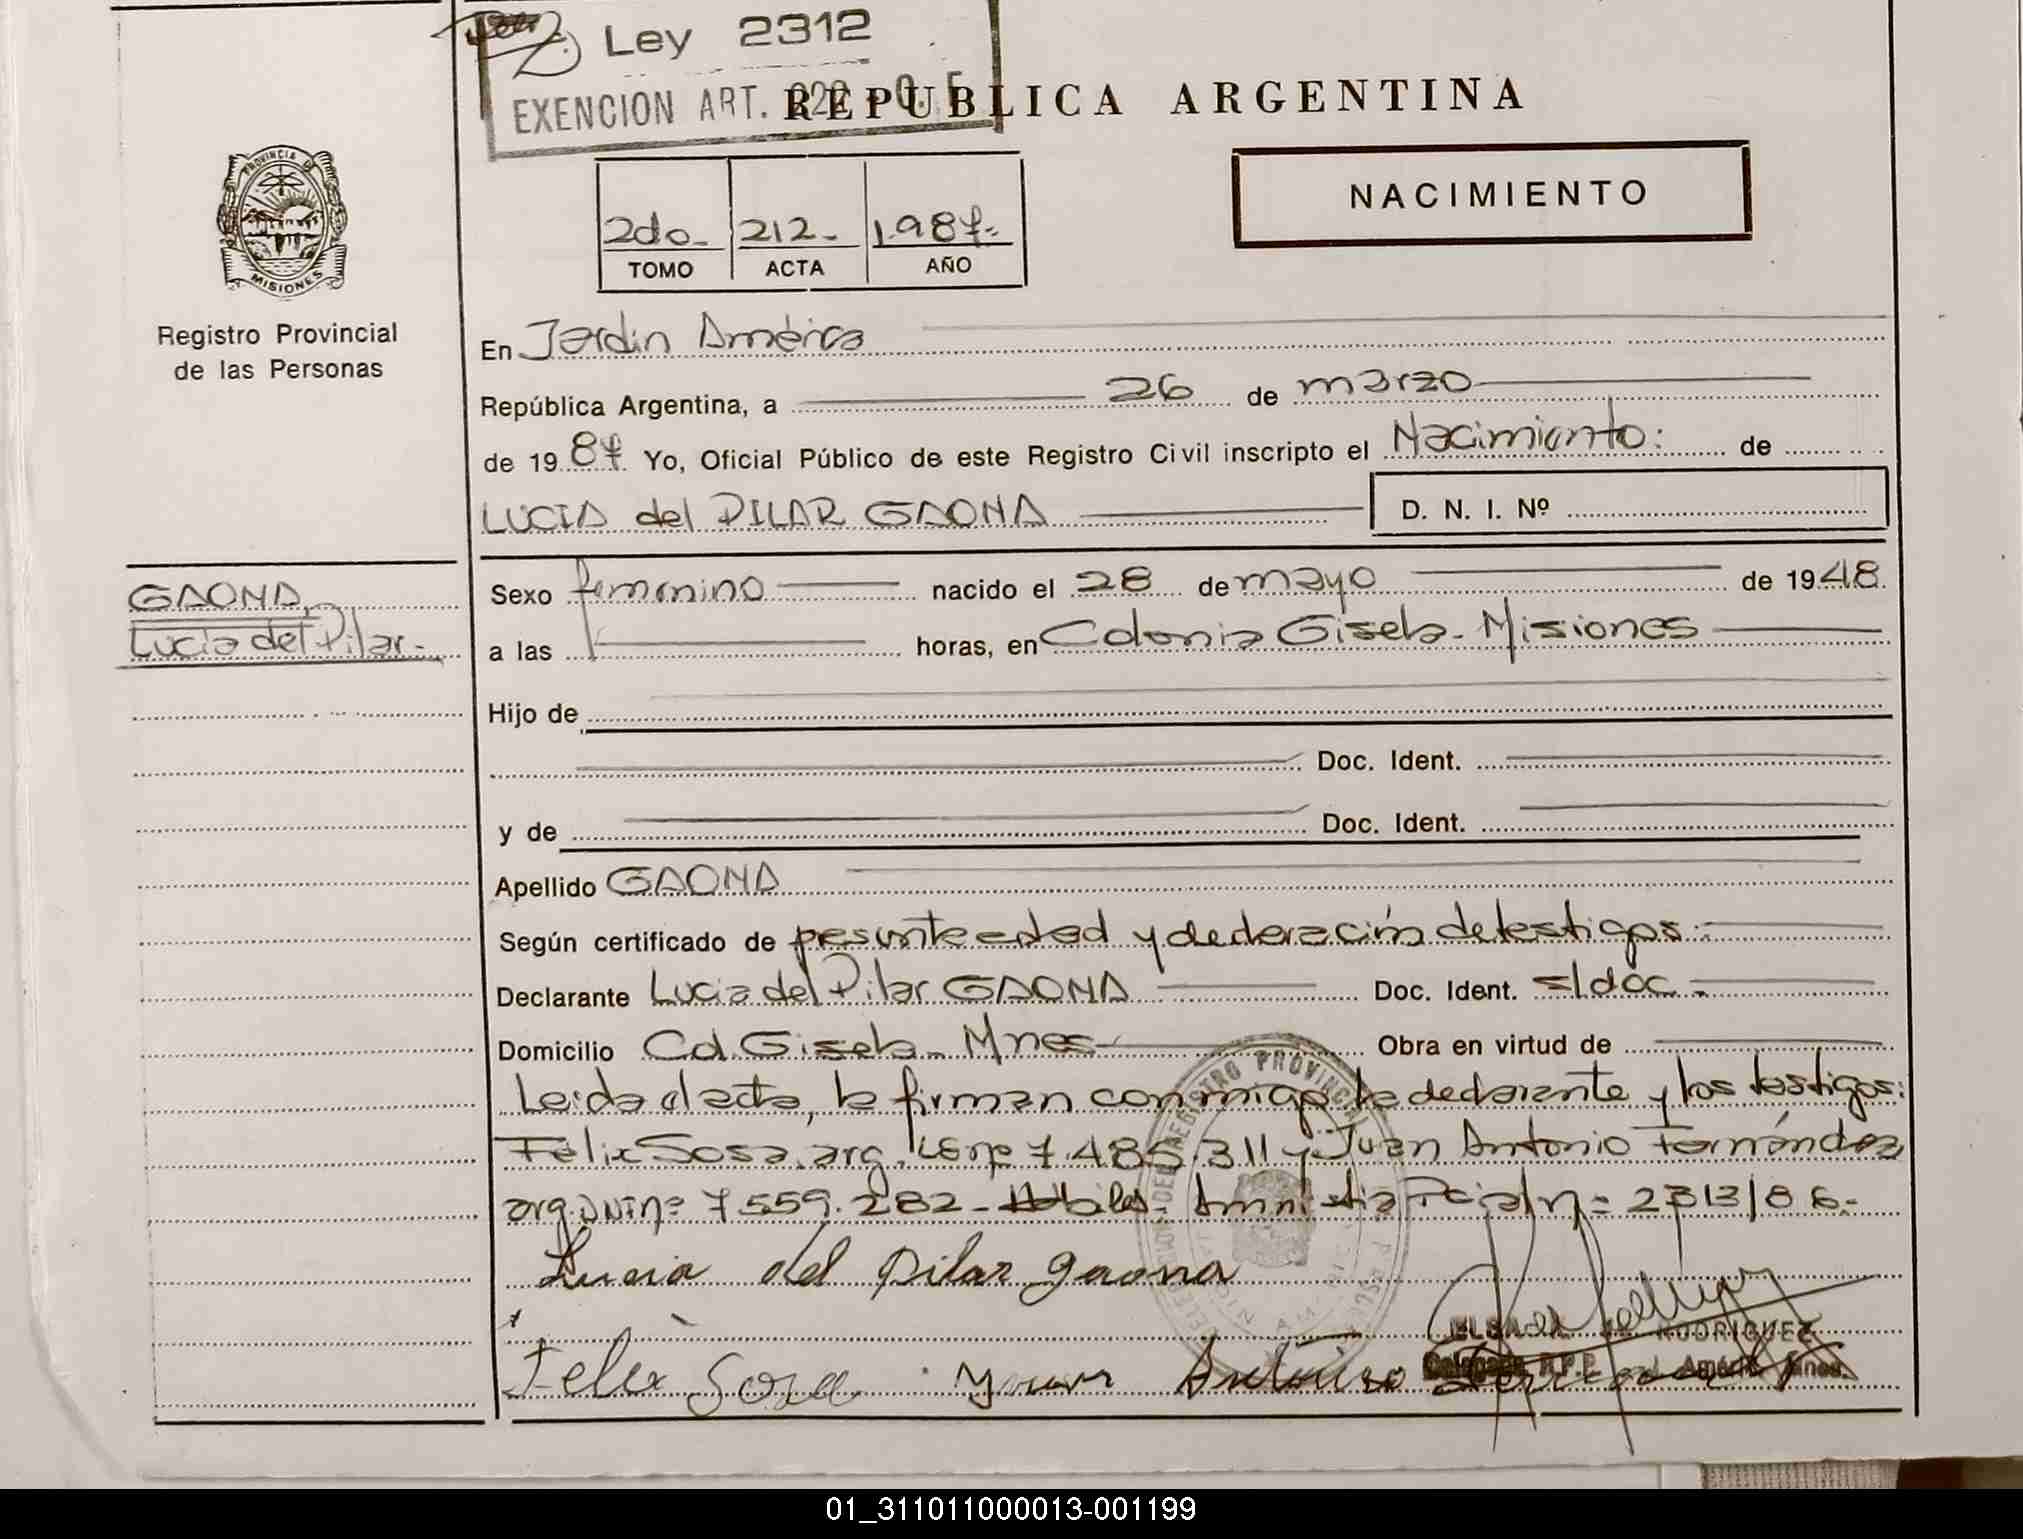 Ley 2312
EXENCION ART.
REPUBLICA ARGENTINA
NACIMIENTO
2do. 212. 1.987.
TOMO ACTA AÑO
PROVINCIA DE
MISIONES
Registro Provincial
de las Personas
En Jardin América
República Argentina, a 26 de marzo
de 19 87 Yo, Oficial Público de este Registro Civil inscripto el Nacimiento: de
LUCIA del PILAR GAONA
D. N. I. Nº
GAONA,
Lucia del Pilar.-
Sexo femenino nacido el 28 de mayo de 1948.
a las horas, en Colonia Gisela - Misiones
Hijo de
Doc. Ident.
y de Doc. Ident.
Apellido GAONA
Según certificado de presunta edad y declaración de testigos.-
Declarante Lucia del Pilar GAONA Doc. Ident. s/doc.
Domicilio Col. Gisela - Mnes Obra en virtud de
Leida el acta, la firman conmigo la declarante y los testigos:
Félix Sosa, arg. LE nº 7.485.311 y Juan Antonio Fernández
arg. DNI nº 7559.282 - Amnistia Pcial nº 2313/86.-
Lucia del Pilar Gaona
Felix Sosa Juan Antonio
RODRIGUEZ
01_311011000013-001199